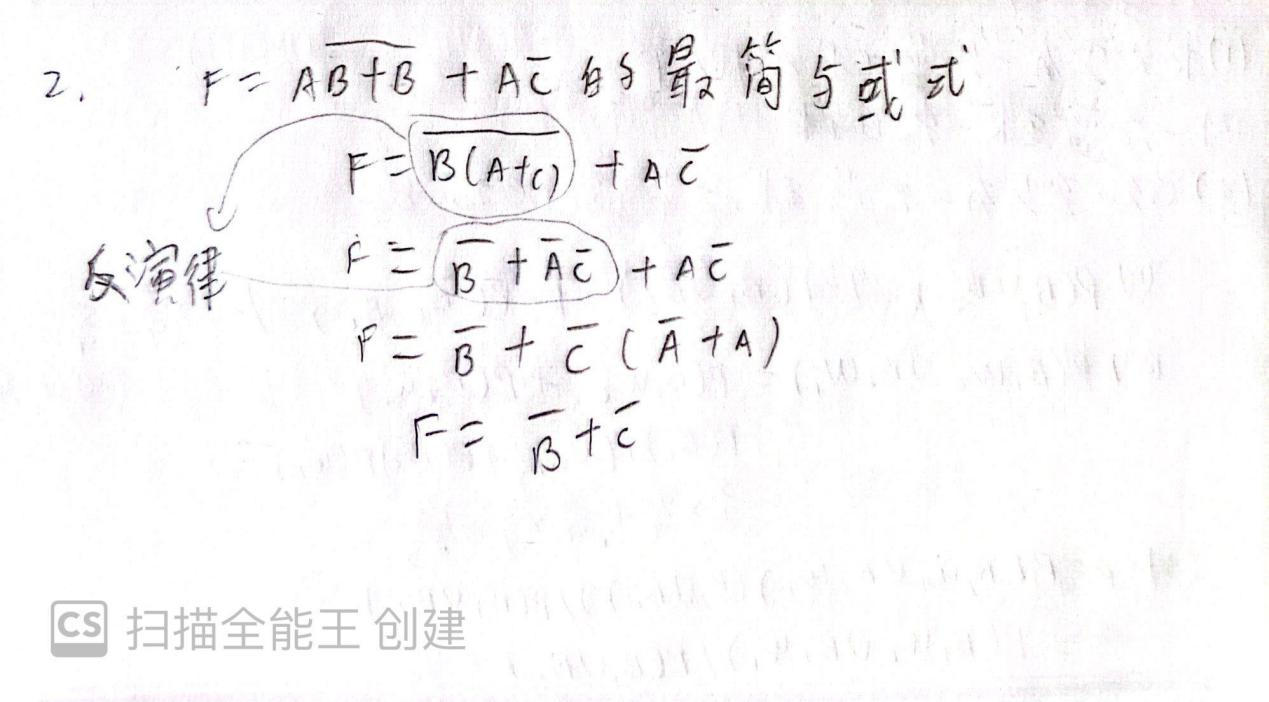 2. F = A\overline{B+B} + A\overline{C} 的最简与或式
F = \overline{B(A+C)} + A\overline{C}
反演律 F = \overline{B} + \overline{A}\overline{C} + A\overline{C}
F = \overline{B} + \overline{C}(\overline{A}+A)
F = \overline{B}+\overline{C}
CS 扫描全能王 创建